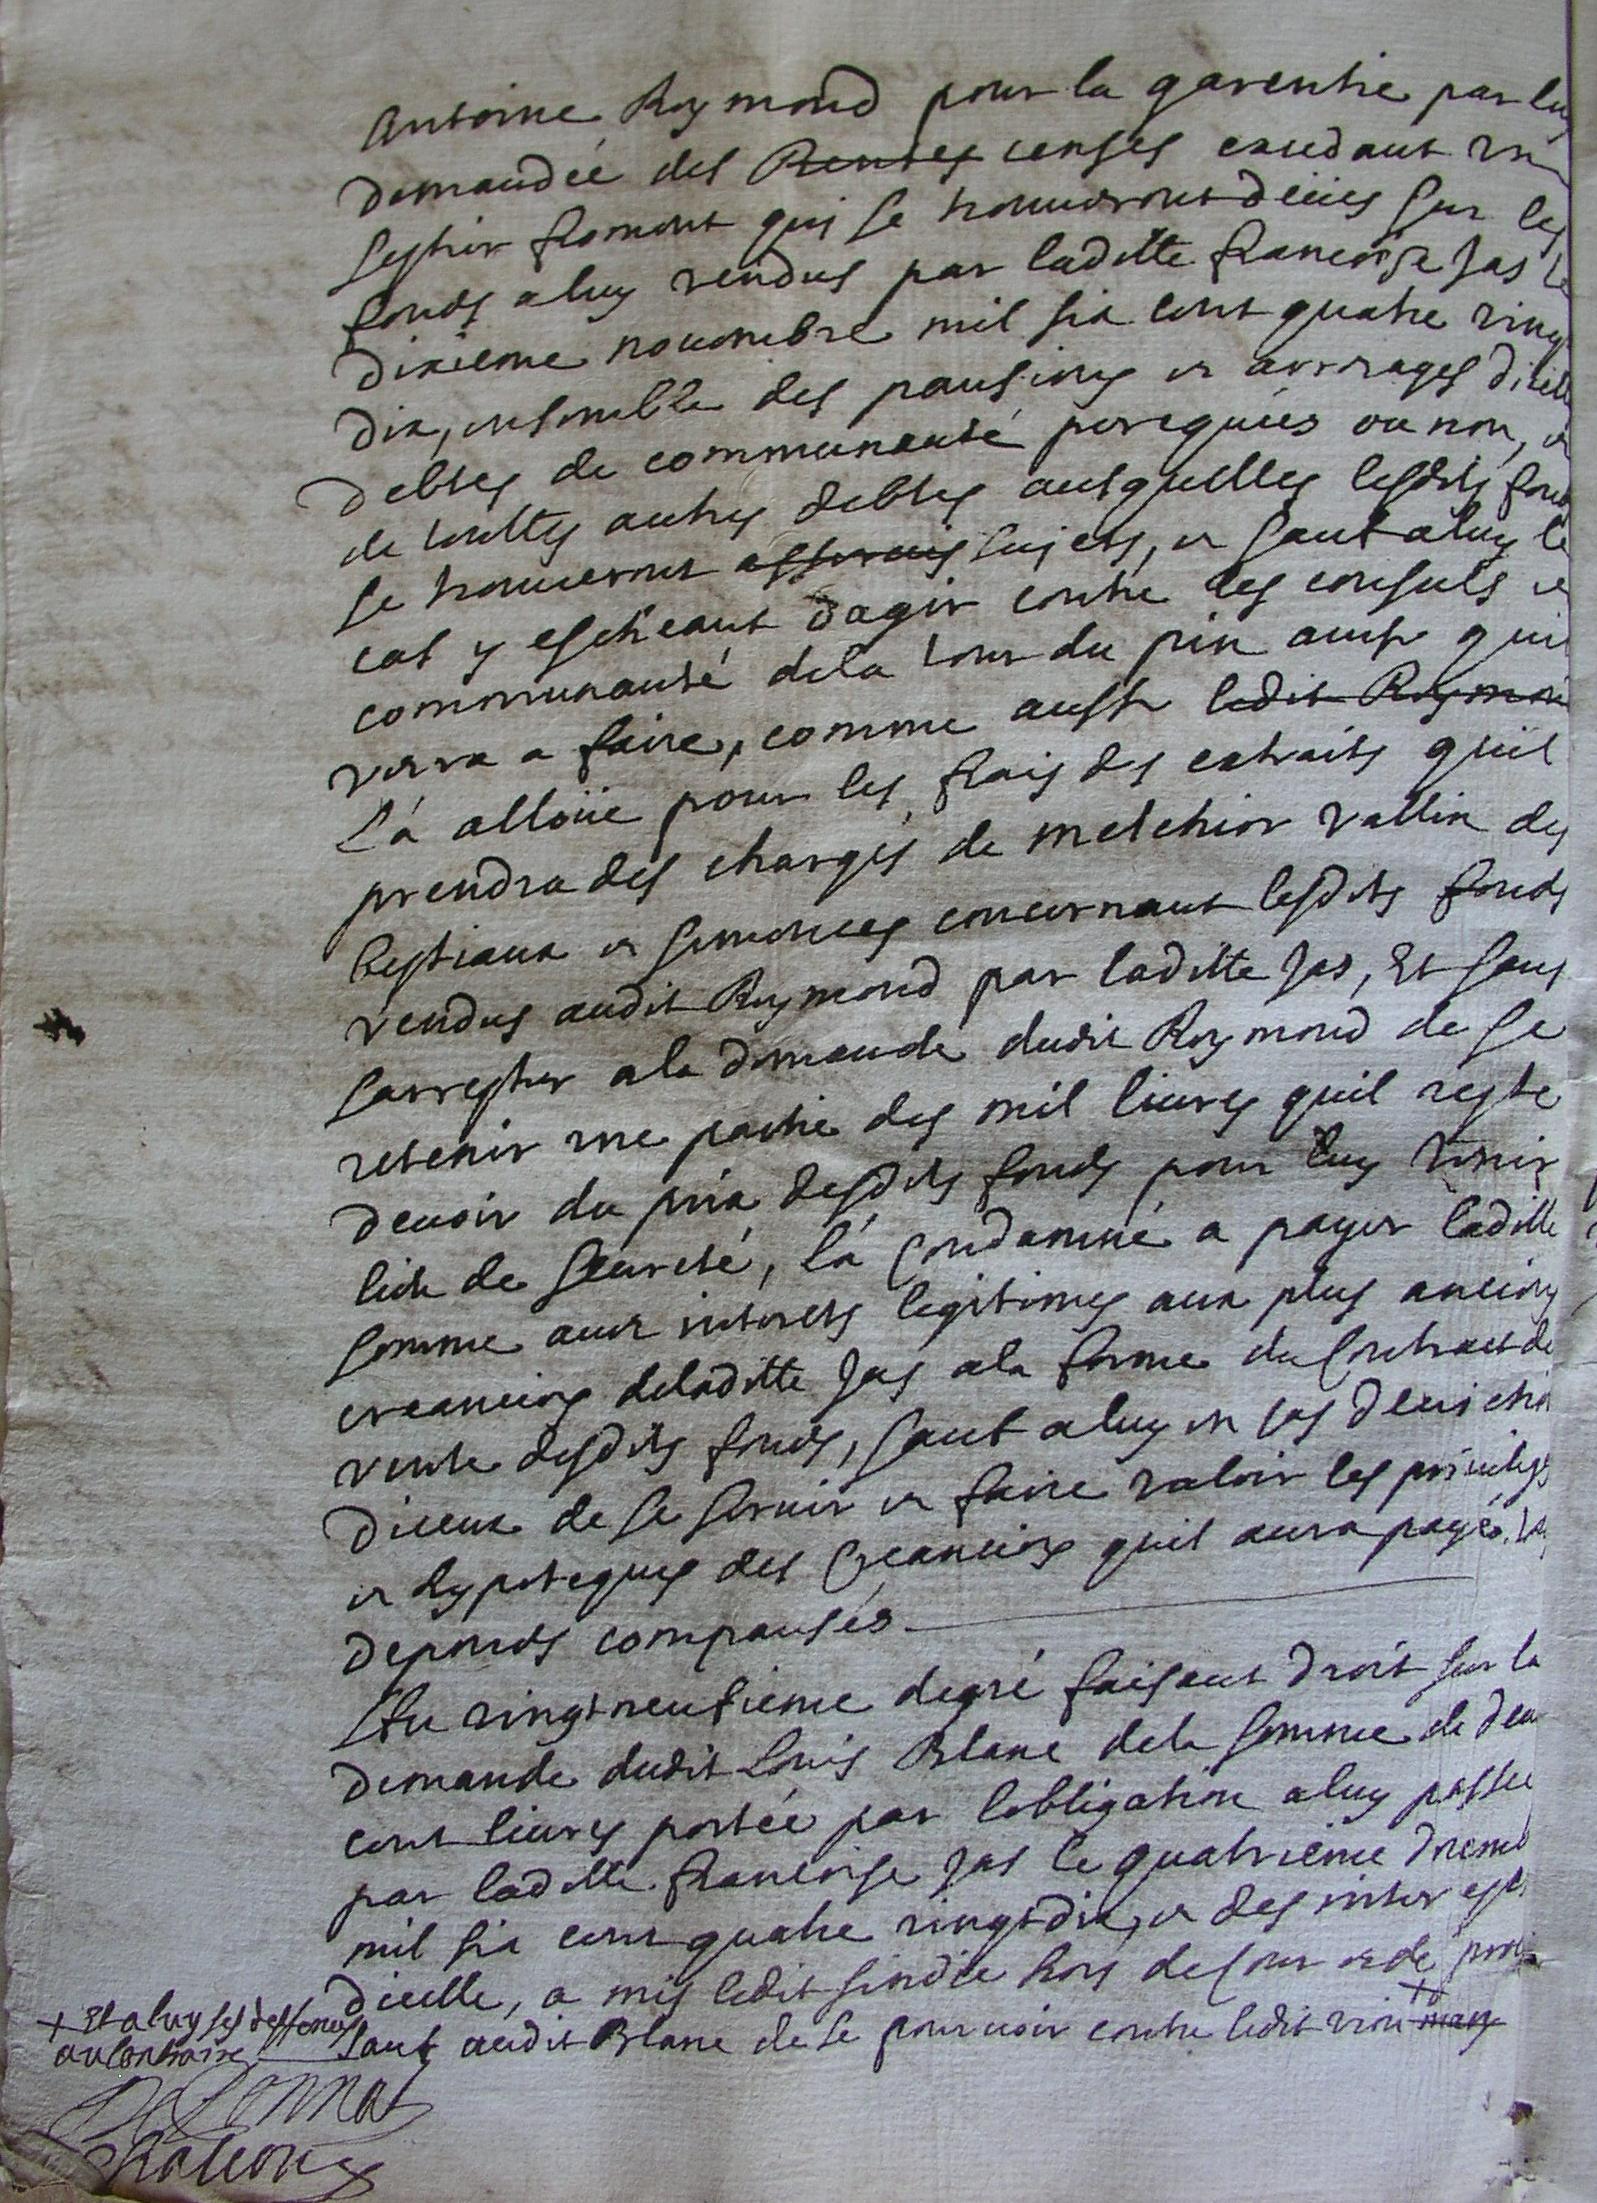 Antoine Raymond pour la garentie par luy
demandée des Rentes censes excedant un
sestier froment qui se trouveront deües sur les
fonds a luy vendus par laditte francoise Jas le
dixieme novembre mil six cent quatre vingt
dix, ensemble des pansions et arrerages dicelles
debtes de communauté perequées ou non, et
de touttes autres debtes ausquelles lesdits fonds
se trouveront sujets, et sauf a luy le
cas y escheant dagir contre les consuls et
communauté dela tour du pin ainsi quil
verra a faire, comme aussy ledit Raymond
la alloüé pour les frais des extraits quil
prendra des charges de melchior vallin des
bestiaux et semences concernant lesdits fonds
vendus audit Raymond par laditte Jas, Et sans
sarrester ala demande dudit Raymond de se
retenir une partie des mil livres quil reste
devoir du prix desdits fonds pour luy tenir
lieu de seureté, la condamné a payer laditte
somme aux interets legitimes aux plus anciens
creanciers deladitte Jas ala forme du contract de
vente desdits fonds, sauf a luy en cas deviction
diceux de se servir et faire valoir les privileges
et hypoteques des creanciers quil aura payé,
depends compensés
Au vingt neufieme degré faisant droit sur la
demande dudit Louis Blanc dela somme de deux
cent livres portée par lobligation a luy passée
par laditte francoise Jas le quatrieme
mil six cent quatre vingt dix, et des interests
dicelle, a mis ledit sindic hors de cour et de
sauf audit Blanc de se pourvoir contre ledit
+ Et a luy ses deffences
au contraire